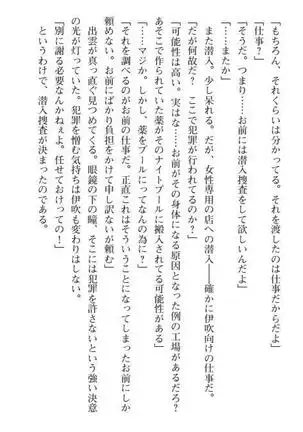 「もちろん、それくらいは分かってる。それを渡したのは仕事だからだよ」
「仕事？」
「そうだ。つまり……お前には潜入捜査をして欲しいんだよ」
「……またか」
また潜入。少し呆れる。だが、女性専用の店への潜入――確かに伊吹向けの仕事だ。
「だが何故だ？　ここで犯罪が行われてるのか？」
「可能性は高い。実は……お前がその身体になる原因となった例の工場があるだろ？
あそこで作られていた薬がそのナイトプールに搬入されてる可能性がある」
「……マジか。しかし、薬をプールにってなんの為に？」
「それを調べるのがお前の仕事だ。正直これはそういうことになってしまったお前にしか
頼めない。お前にばかり負担をかけて申し訳ないが頼む」
出雲が真っ直ぐ見つめてくる。眼鏡の下の瞳、そこには犯罪を許さないという強い決意
の光が灯っていた。犯罪を憎む気持ちは伊吹も変わりはしない。
「別に謝る必要なんかねぇよ。任せておけっての！」
というわけで、潜入捜査が決まったのである。